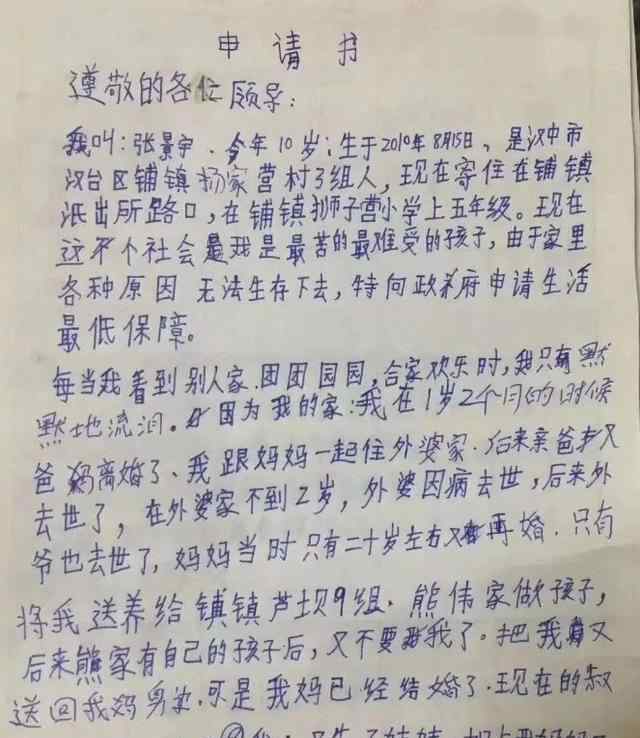 申请书
遵敬的各位领导：
我叫：张景宇．今年10岁；生于2010年8月15日，是汉中市
汉台区铺镇杨家营村3组人，现在寄住在铺镇
派出所路口，在铺镇狮子营小学上五年级。现在
这个社会是我是最苦的最难受的孩子，由于家里
各种原因 无法生存下去，特向政府申请生活
最低保障。
每当我看到别人家．团团园园，合家欢乐时，我只有默
默地流泪。因为我的家：我在1岁2个月的时候
爸妈离婚了、我跟妈妈一起住外婆家．后来亲爸又
去世了，在外婆家不到2岁，外婆因病去世，后来外
爷也去世了，妈妈当时只有二十岁左右又再婚．只有
将我送养给镇镇芦坝9组．熊伟家做孩子，
后来熊家有自己的孩子后，又不要我了。把我又
送回我妈身边．可是我妈已经结婚了．现在的叔